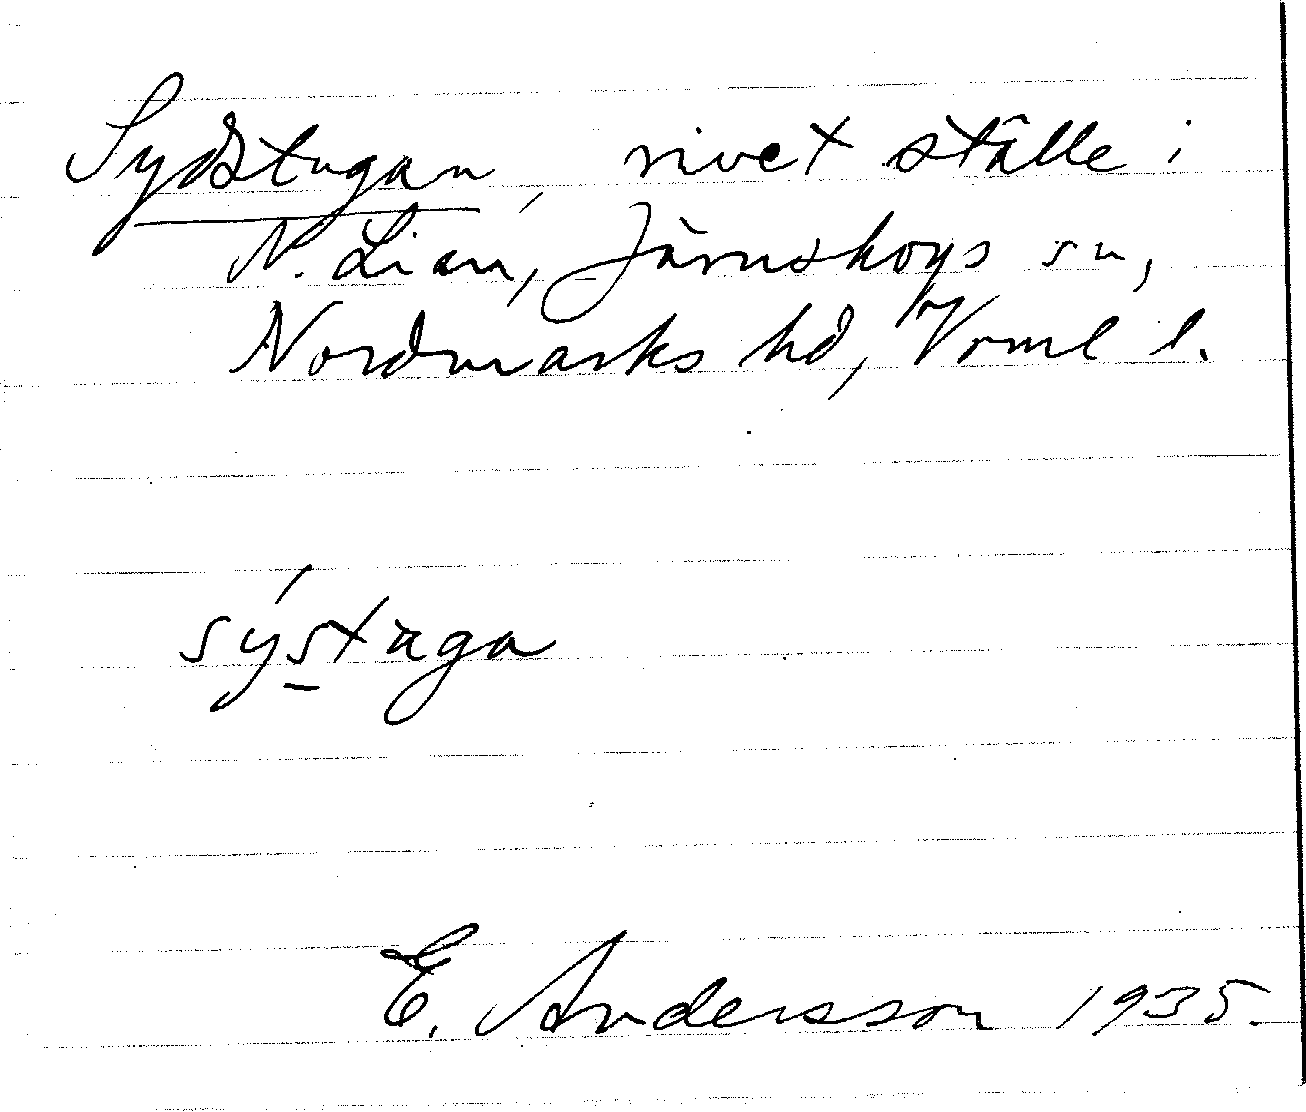 Sydstugan, rivet ställe i
N. Lian, Järnskogs sn,
Nordmarks hd, Vrml l.
sýstaga
E. Andersson 1935.